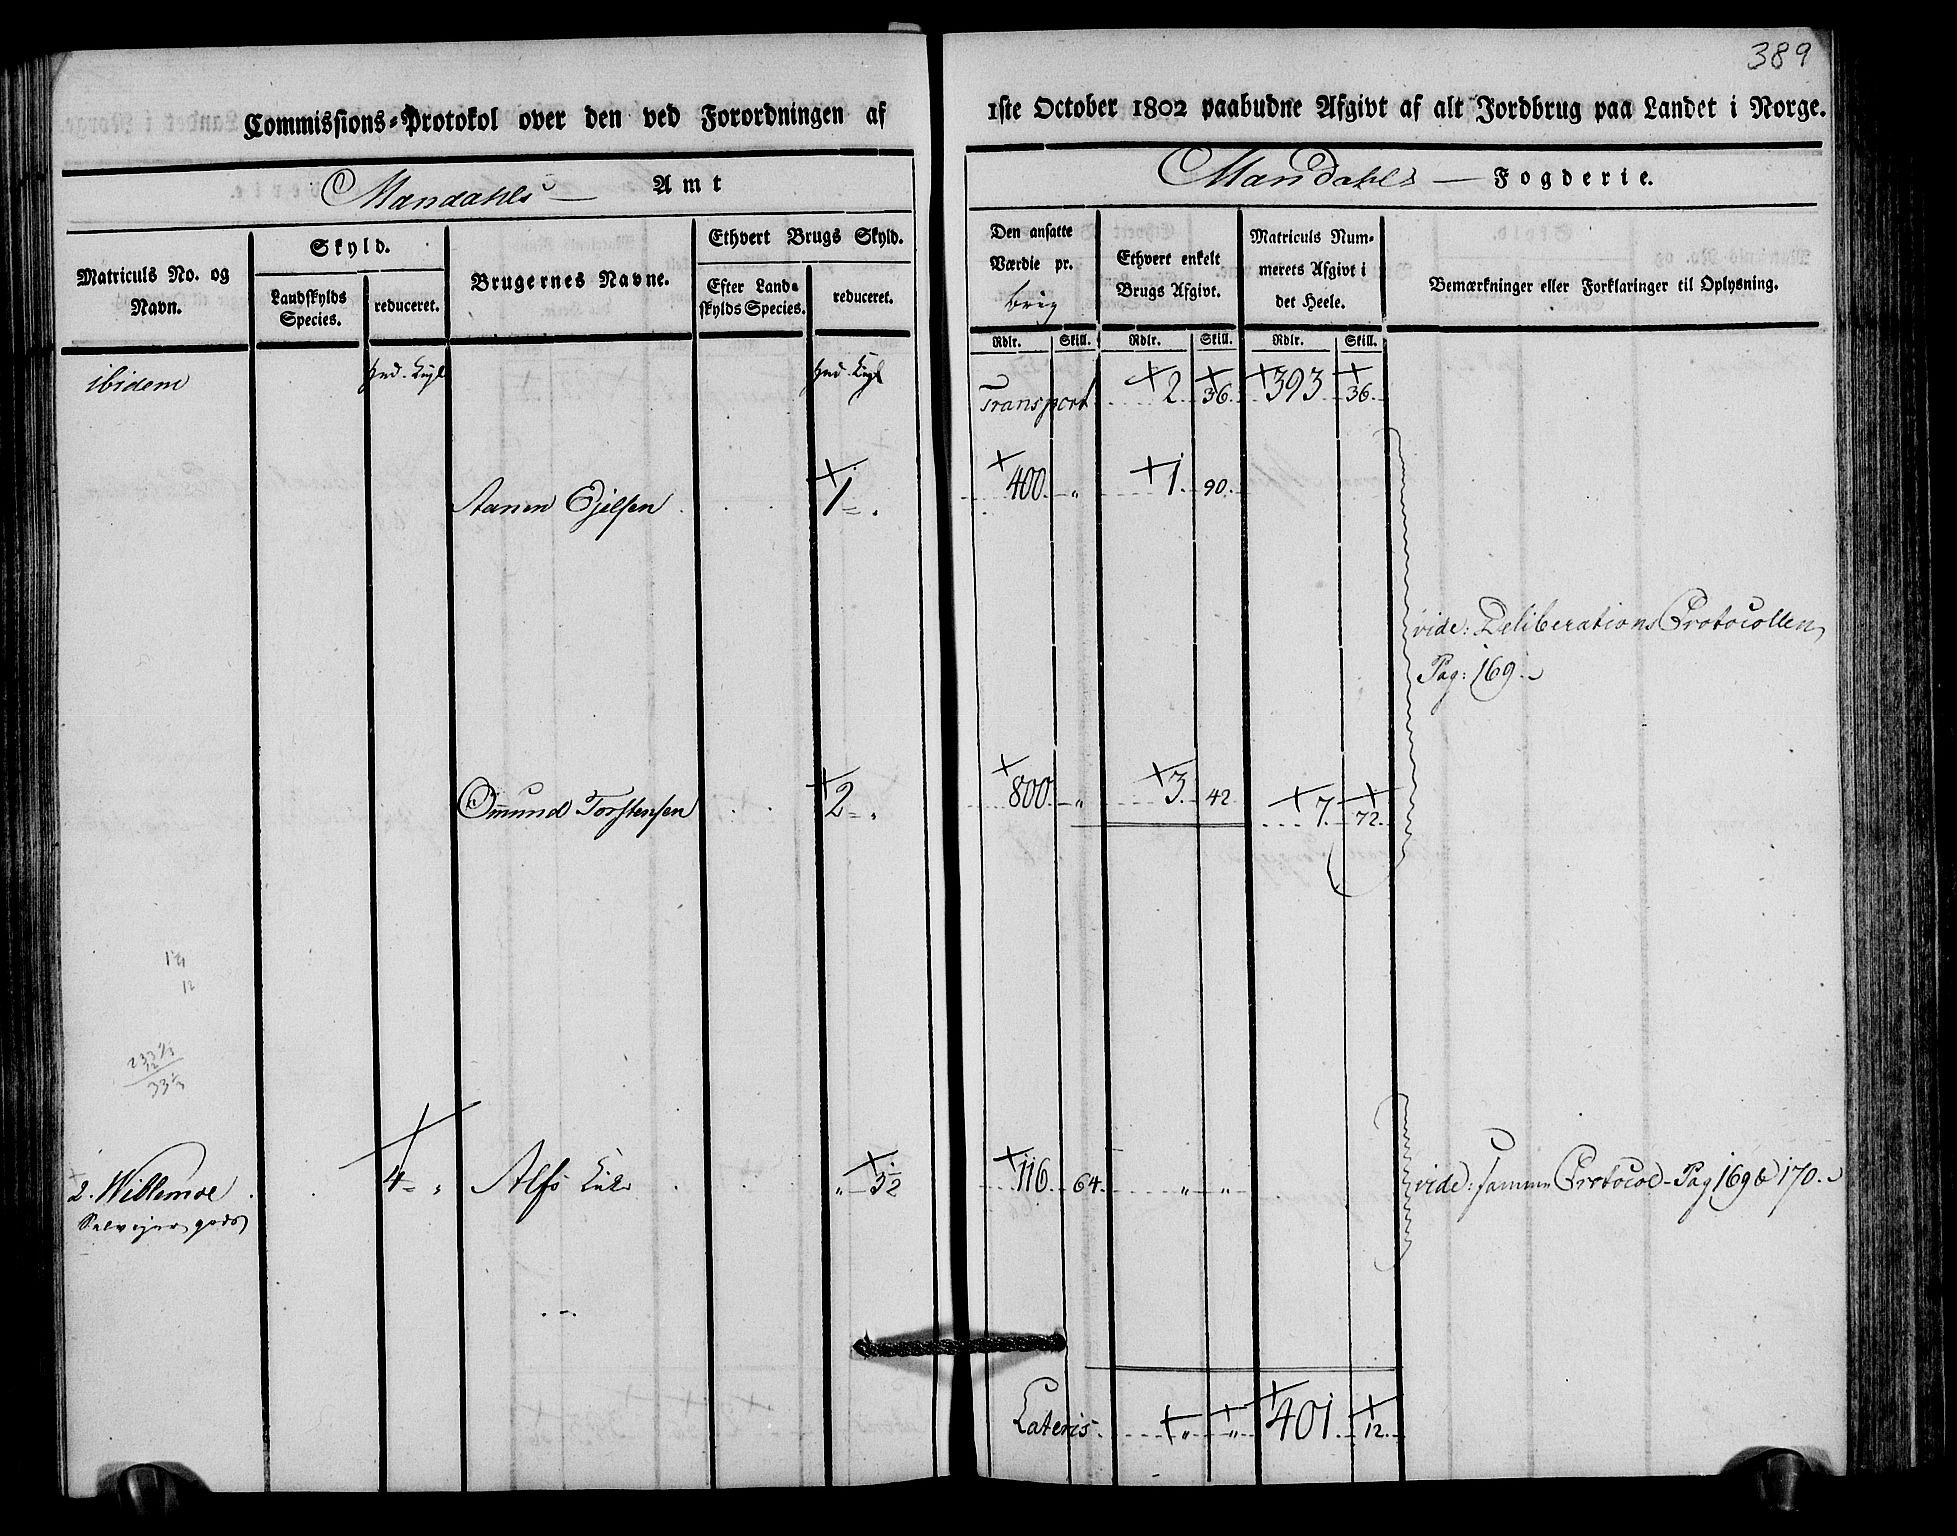 389
Commissions-Protokol over den ved Forordningen af 1ste October 1802 paabudne Afgivt af alt Jordbrug paa Landet i Norge.
Mandahls Amt
Mandahls Fogderie.
Matriculs No. og Navn.
Skyld.
Landskylds Species.
reduceret.
Brugernes Navne.
Ethvert Brugs Skyld.
Efter Landskylds Species.
reduceret.
Den ansatte Værdie pr.
brug
Ethvert enkelt Brugs Afgivt.
Matriculs Nummerets Afgivt i det Heele.
Bemærkninger eller Forklaringer til Oplysning.
Rdlr. Skill. Rdlr. Skill. Rdlr. Skill.
ibidem
Transport 2 36 393 36
Aanen 1 400 " 1 90
vide: Deliberations Protocollen
Pag: 169.
Omund Torstensen 2 " 800 " 3 42 7 72
2. Willemoe 4 " Alfs " 3½ 116 64 " "
Selvejer gods
vide: samme Protocol Pag 169 & 170.
Lateris " " 401 12